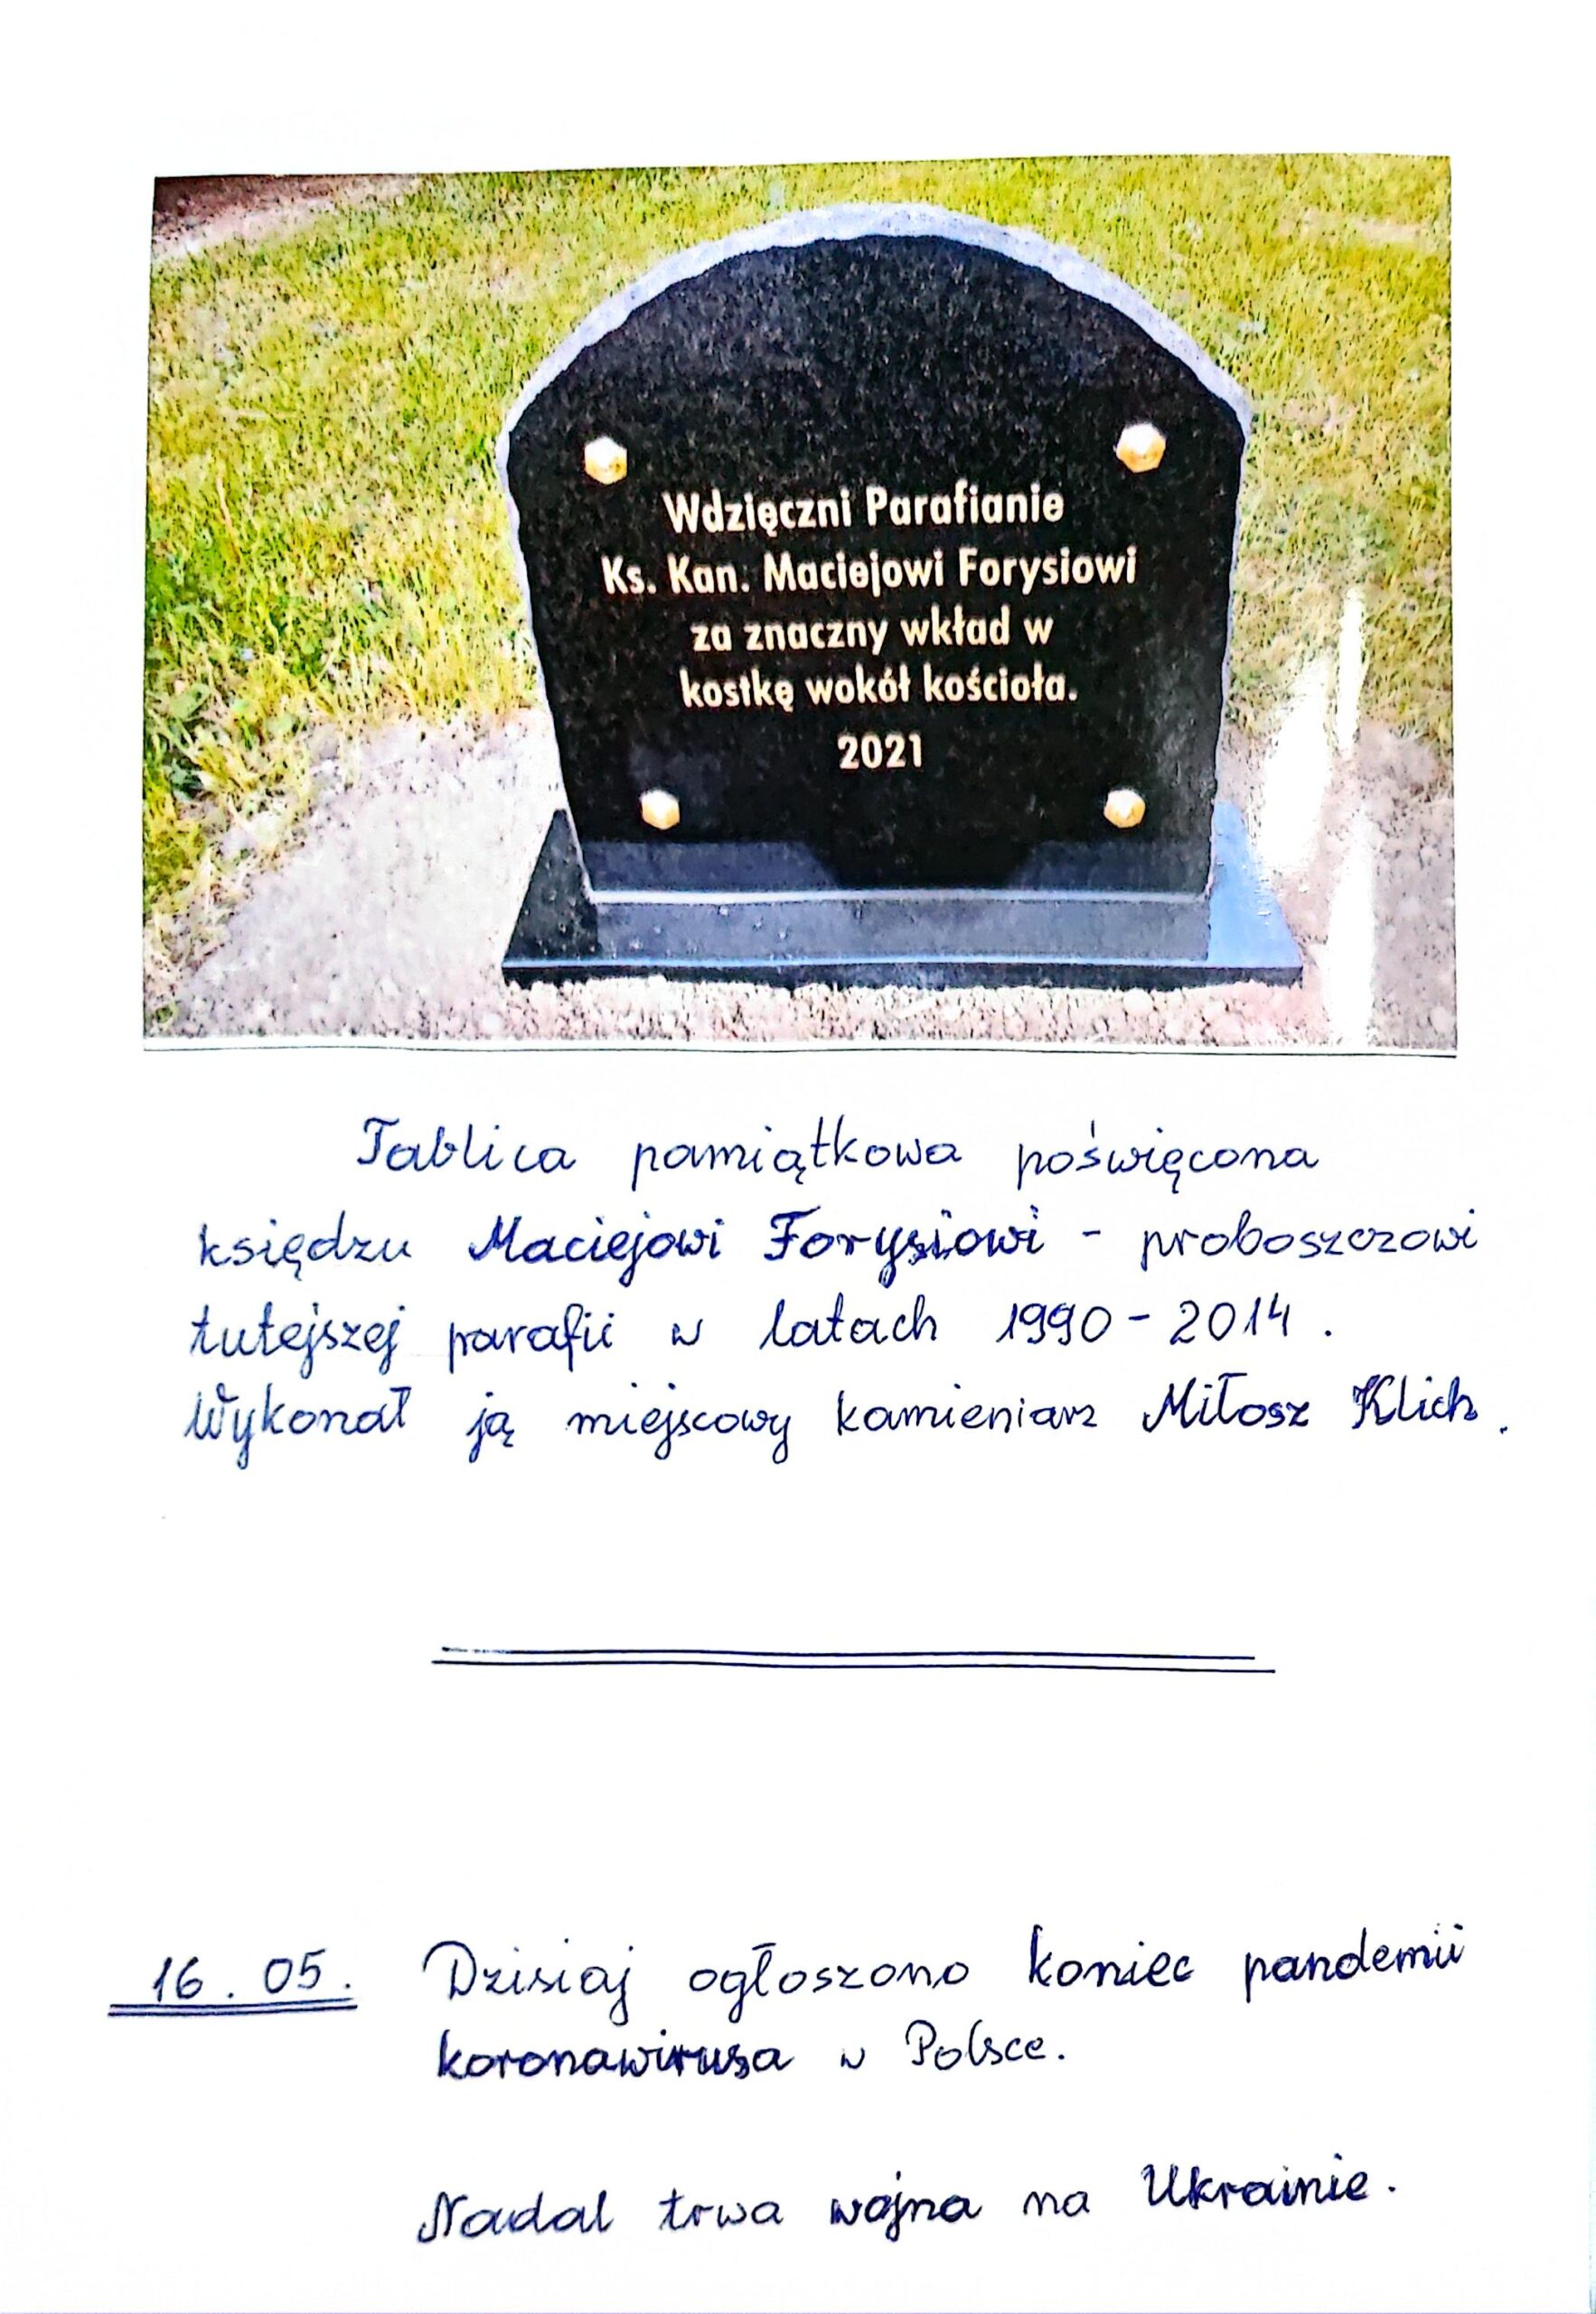 Wdzięczni Parafianie
Ks. Kan. Maciejowi Forysiowi
za znaczny wkład w
kostkę wokół kościoła.
2021
Tablica pamiątkowa poświęcona
księdzu Maciejowi Forysiowi - proboszczowi
tutejszej parafii w latach 1990-2014.
Wykonał ją miejscowy kamieniarz Miłosz Klich.
16.05. Dzisiaj ogłoszono koniec pandemii
koronawirusa w Polsce.
Nadal trwa wojna na Ukrainie.